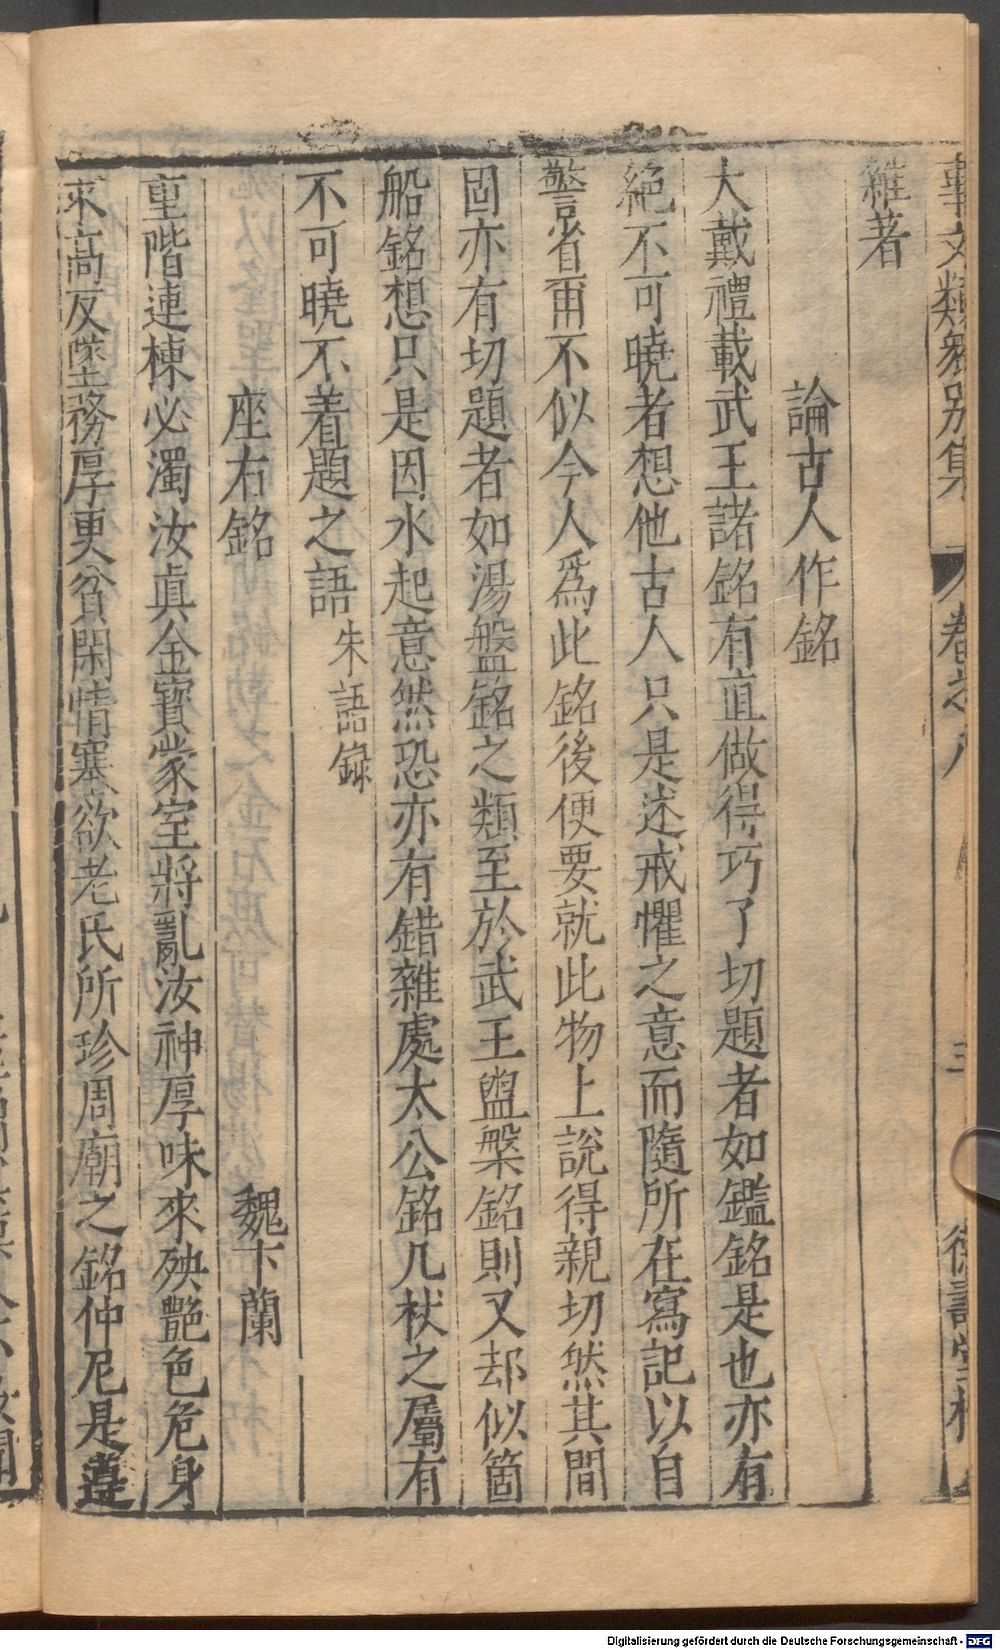 事文類聚別集　卷之八　三　德壽堂梓
雜著
論古人作銘
大戴禮載武王諸銘有直做得巧了切題者如鑑銘是也亦有
絕不可曉者想他古人只是述戒懼之意而隨所在寫記以自
警省爾不似今人爲此銘後便要就此物上說得親切然其間
固亦有切題者如湯盤銘之類至於武王盥槃銘則又却似箇
船銘想只是因水起意然恐亦有錯雜處太公銘几杖之屬有
不可曉不着題之語朱語錄
座右銘　魏卞蘭
重階連棟必濁汝真金寶蒙室將亂汝神厚味來殃艷色危身
求高反墜務厚更貧閑情塞欲老氏所珍周廟之銘仲尼是遵
Digitalisierung gefördert durch die Deutsche Forschungsgemeinschaft - DFG